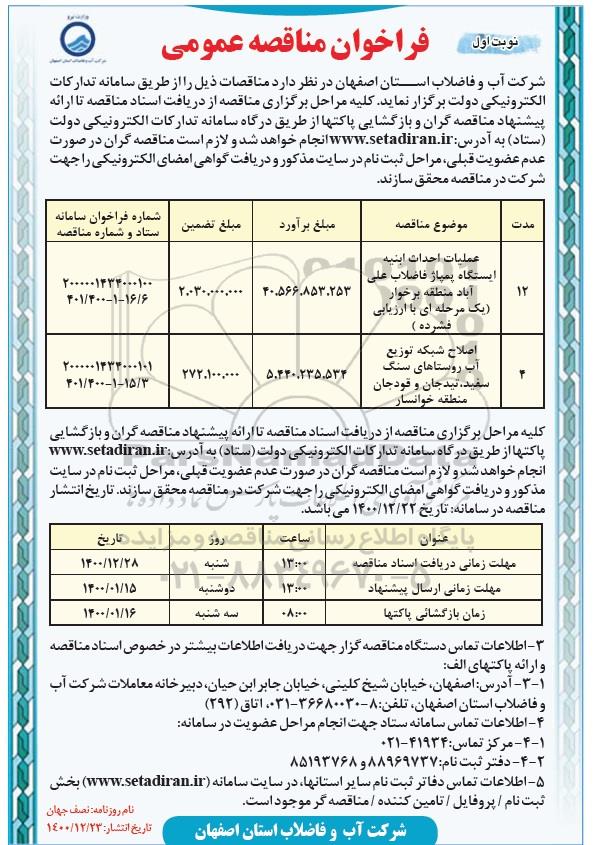 وزارت نیرو
شرکت آب و فاضلاب استان اصفهان
فراخوان مناقصه عمومی
نوبت اول
شرکت آب و فاضلاب استان اصفهان در نظر دارد مناقصات ذیل را از طریق سامانه تدارکات
الکترونیکی دولت برگزار نماید. کلیه مراحل برگزاری مناقصه از دریافت اسناد مناقصه تا ارائه
پیشنهاد مناقصه گران و بازگشایی پاکتها از طریق درگاه سامانه تدارکات الکترونیکی دولت
(ستاد) به آدرس: www.setadiran.ir انجام خواهد شد و لازم است مناقصه گران در صورت
عدم عضویت قبلی، مراحل ثبت نام در سایت مذکور و دریافت گواهی امضای الکترونیکی را جهت
شرکت در مناقصه محقق سازند.
مدت | موضوع مناقصه | مبلغ برآورد | مبلغ تضمین | شماره فراخوان سامانه
ستاد و شماره مناقصه
۱۲ | عملیات احداث ابنیه
ایستگاه پمپاژ فاضلاب علی
آباد منطقه برخوار
(یک مرحله ای با ارزیابی
فشرده )
۴۰.۵۶۶.۸۵۳.۲۵۳ | ۲.۰۳۰.۰۰۰.۰۰۰ | ۲۰۰۰۰۰۱۴۳۴۰۰۰۱۰۰
۴۰۱/۴۰۰-۱-۱۶/۶
۴ | اصلاح شبکه توزیع
آب روستاهای سنگ
سفید،تیدجان و قودجان
منطقه خوانسار
۵.۴۴۰.۲۳۵.۵۳۴ | ۲۷۲.۱۰۰.۰۰۰ | ۲۰۰۰۰۰۱۴۳۴۰۰۰۱۰۱
۴۰۱/۴۰۰-۱-۱۵/۳
کلیه مراحل برگزاری مناقصه از دریافت اسناد مناقصه تا ارائه پیشنهاد مناقصه گران و بازگشایی
پاکتها از طریق درگاه سامانه تدارکات الکترونیکی دولت (ستاد) به آدرس: www.setadiran.ir
انجام خواهد شد و لازم است مناقصه گران در صورت عدم عضویت قبلی، مراحل ثبت نام در سایت
مذکور و دریافت گواهی امضای الکترونیکی را جهت شرکت در مناقصه محقق سازند. تاریخ انتشار
مناقصه در سامانه: تاریخ ۱۴۰۰/۱۲/۲۲ می باشد.
پایگاه اطلاع رسانی مناقصه و مزایده
۰۲۱-۸۸۳۴۹۶۷۰-۵
عنوان | ساعت | روز | تاریخ
مهلت زمانی دریافت اسناد مناقصه | ۱۳:۰۰ | شنبه | ۱۴۰۰/۱۲/۲۸
مهلت زمانی ارسال پیشنهاد | ۱۳:۰۰ | دوشنبه | ۱۴۰۰/۰۱/۱۵
زمان بازگشائی پاکتها | ۰۸:۰۰ | سه شنبه | ۱۴۰۰/۰۱/۱۶
۳-اطلاعات تماس دستگاه مناقصه گزار جهت دریافت اطلاعات بیشتر در خصوص اسناد مناقصه
و ارائه پاکتهای الف:
۳-۱- آدرس:اصفهان، خیابان شیخ کلینی، خیابان جابر ابن حیان، دبیرخانه معاملات شرکت آب
و فاضلاب استان اصفهان، تلفن:۸-۰۳۱-۳۶۶۸۰۰۳۰، اتاق (۲۹۲)
۴-اطلاعات تماس سامانه ستاد جهت انجام مراحل عضویت در سامانه:
۴-۱- مرکز تماس:۰۲۱-۴۱۹۳۴
۴-۲- دفتر ثبت نام:۸۸۹۶۹۷۳۷ و ۸۵۱۹۳۷۶۸
۵-اطلاعات تماس دفاتر ثبت نام سایر استانها، در سایت سامانه (www.setadiran.ir) بخش
ثبت نام / پروفایل / تامین کننده / مناقصه گر موجود است.
نام روزنامه: نصف جهان
تاریخ انتشار: ۱۴۰۰/۱۲/۲۳
شرکت آب و فاضلاب استان اصفهان